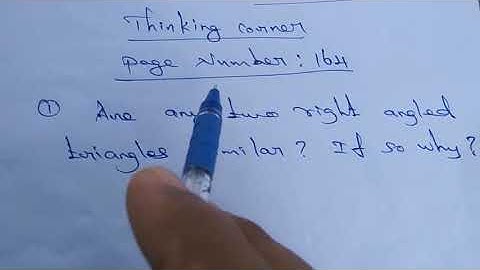 Thinking corner
Page Number: 164
① Are any two right angled
triangles similar? If so why?